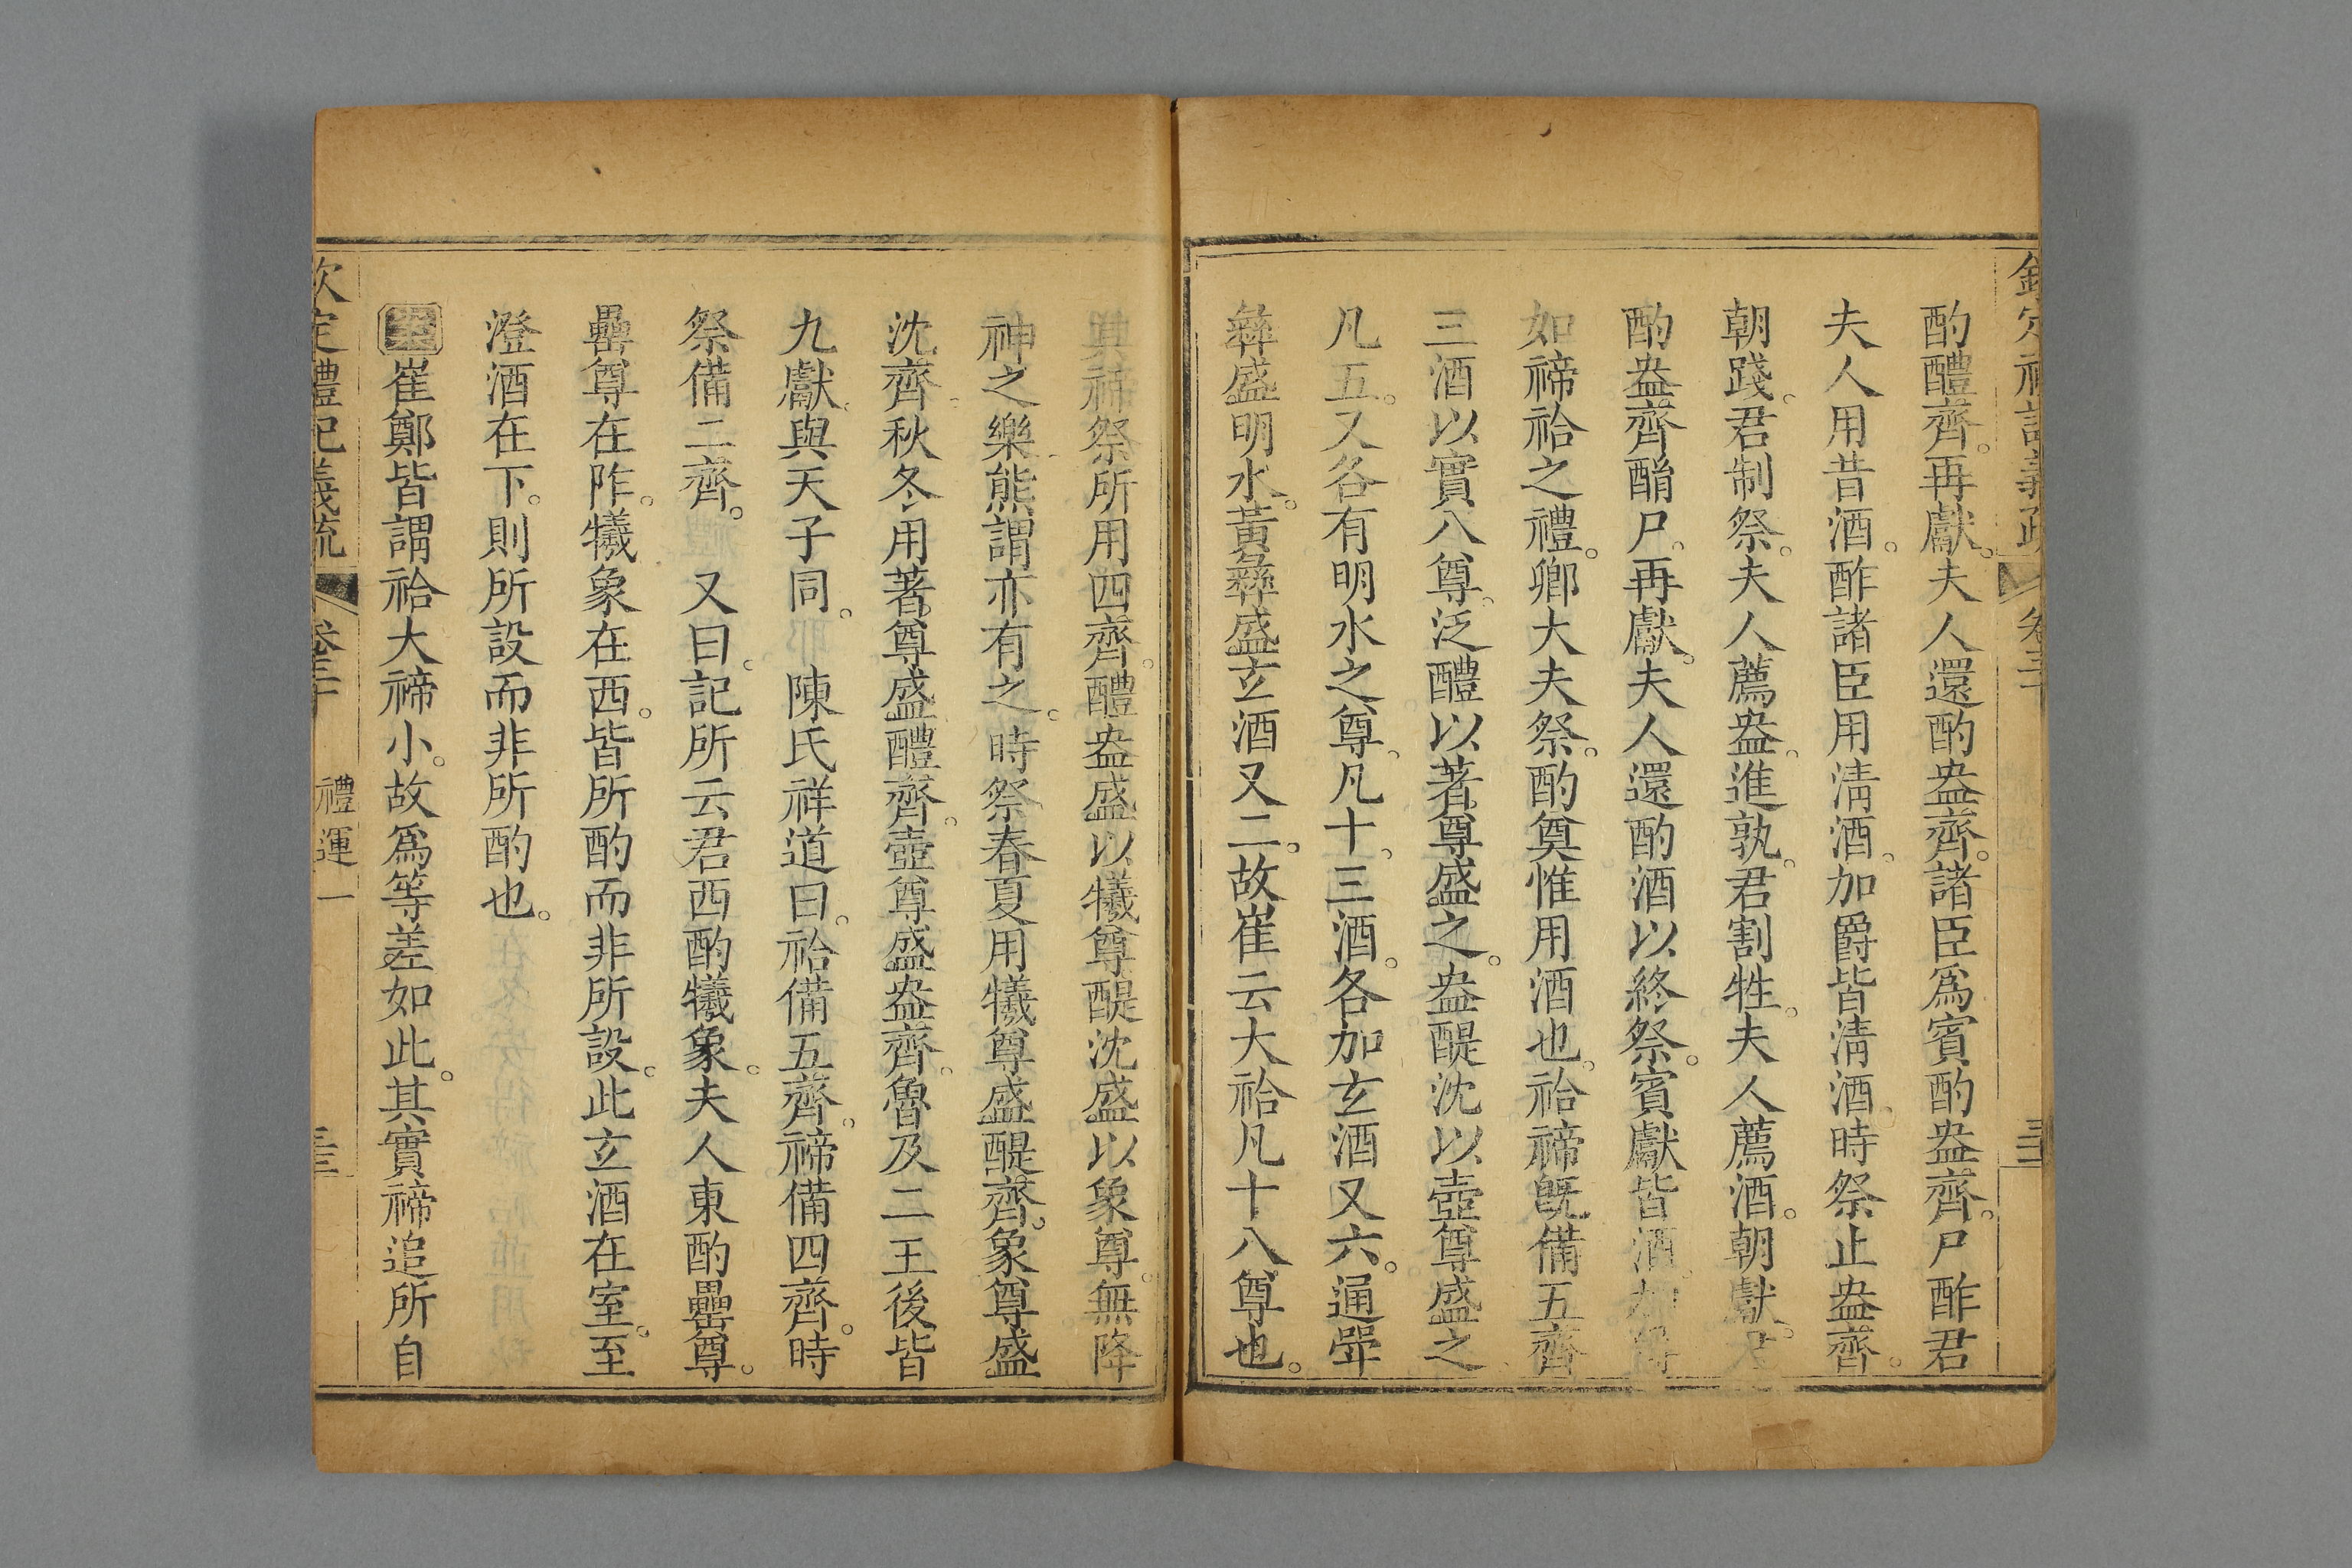 酌醴齊。再獻。夫人還酌盎齊。諸臣爲賓酌盎齊。尸酢君
夫人用昔酒。酢諸臣用淸酒。加爵皆淸酒。時祭止盎齊。
朝踐。君制祭。夫人薦盎。進孰。君割牲。夫人薦酒。朝獻。君
酌盎齊酳尸。再獻。夫人還酌酒以終祭。賓獻皆酒。加爵
如禘祫之禮。卿大夫祭。酌奠惟用酒也。祫禘旣備五齊
三酒以實八尊。泛醴以著尊盛之。盎醍沈以壺尊盛之
凡五。又各有明水之尊。凡十。三酒。各加玄酒又六。通斝
彝盛明水。黃彝盛玄酒又二。故崔云大祫凡十八尊也。
其禘祭所用四齊。醴盎盛以犧尊。醍沈盛以象尊。無降
神之樂。熊謂亦有之。時祭。春夏用犧尊盛醍齊。象尊盛
沈齊。秋冬用著尊盛醴齊。壺尊盛盎齊。魯及二王後皆
九獻。與天子同。 陳氏祥道曰。祫備五齊。禘備四齊。時
祭備二齊。 又曰。記所云君西酌犧象。夫人東酌罍尊。
罍尊在阼。犧象在西。皆所酌而非所設。此玄酒在室。至
澄酒在下。則所設而非所酌也。
崔鄭皆謂祫大禘小。故爲等差如此。其實禘追所自
欽定禮記義疏 卷三十 禮運一 三三